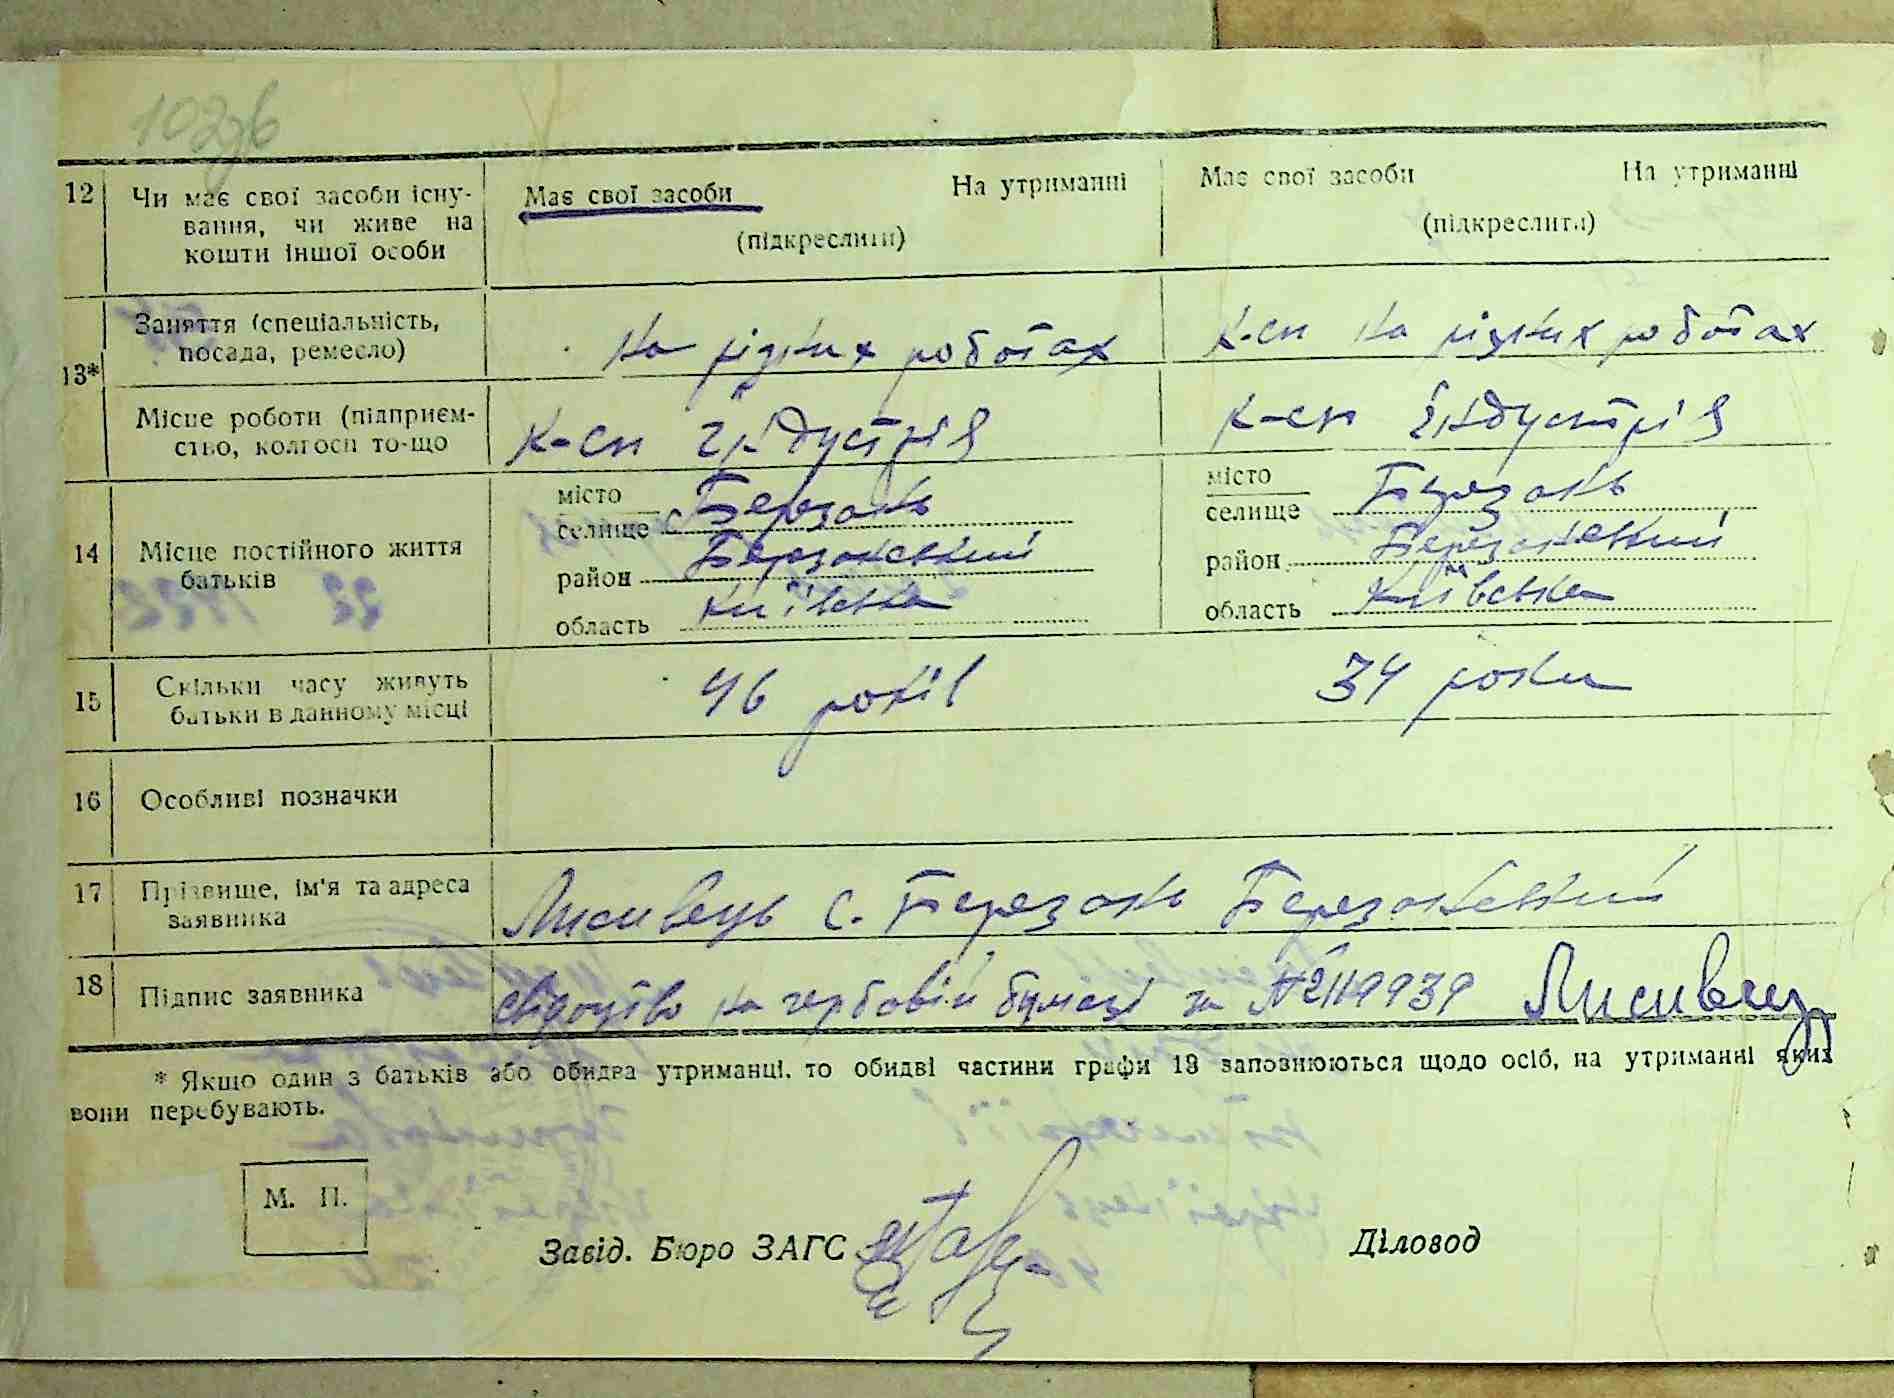 102зв
12 Чи має свої засоби існу- Має свої засоби На утриманні Має свої засоби На утриманні
вання, чи живе на (підкреслити) (підкреслити)
кошти іншої особи
13* Заняття (спеціальність, на різних роботах к-сп на різних роботах
посада, ремесло)
Місце роботи (підприєм- к-сп Індустрія к-сп Індустрія
ство, колгосп то-що
14 Місце постійного життя
батьків
місто
селище с. Березань
район Березанський
область київська
місто
селище Березань
район Березанський
область Київська
15 Скільки часу живуть 46 років 34 роки
батьки в данному місці
16 Особливі позначки
17 Прізвище, ім'я та адреса Лисивець с. Березань Березанський
заявника
18 Підпис заявника свідоцтво на гербовій бумазі за № 2119939 Лисивец
* Якщо один з батьків або обидва утриманці, то обидві частини графи 13 заповнюються щодо осіб, на утриманні яких
вони перебувають.
М. П.
Завід. Бюро ЗАГС Діловод